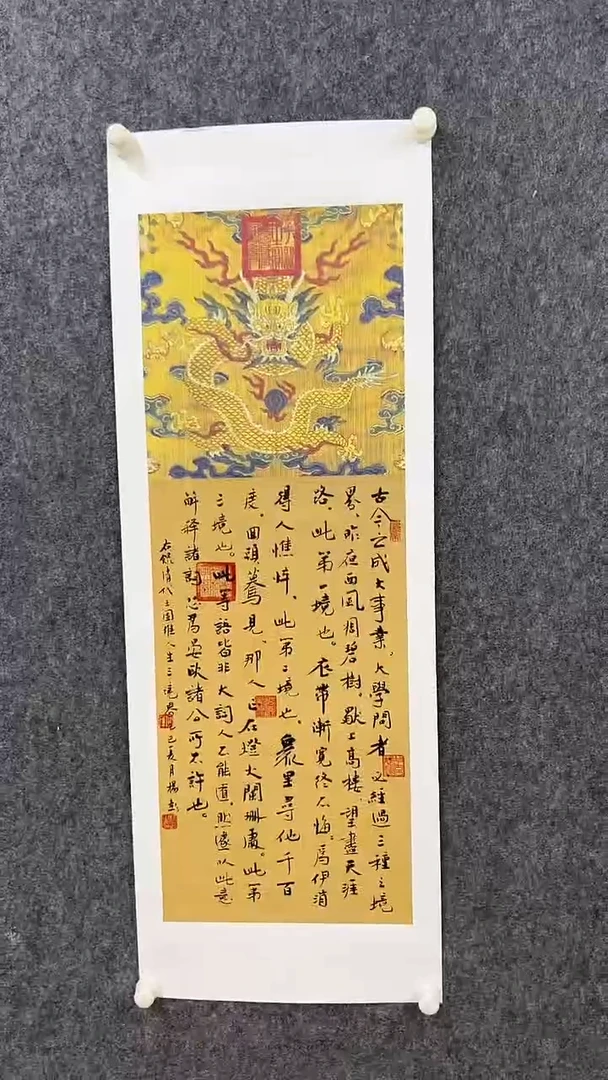 古今之成大事業、大學問者必經過三種之境
界、昨夜西風凋碧樹。獨上高樓、望盡天涯
路、此第一境也。衣帶漸寬終不悔。爲伊消
得人憔悴、此第二境也、眾里尋他千百
度、回頭驀見、那人正在燈火闌珊處。此第
三境也。此等語皆非大詞人不能道、然遽以此意
解釋諸詞恐爲晏歐諸公所不許也。
右錄清代王國維人生三境界乙巳夏月楊